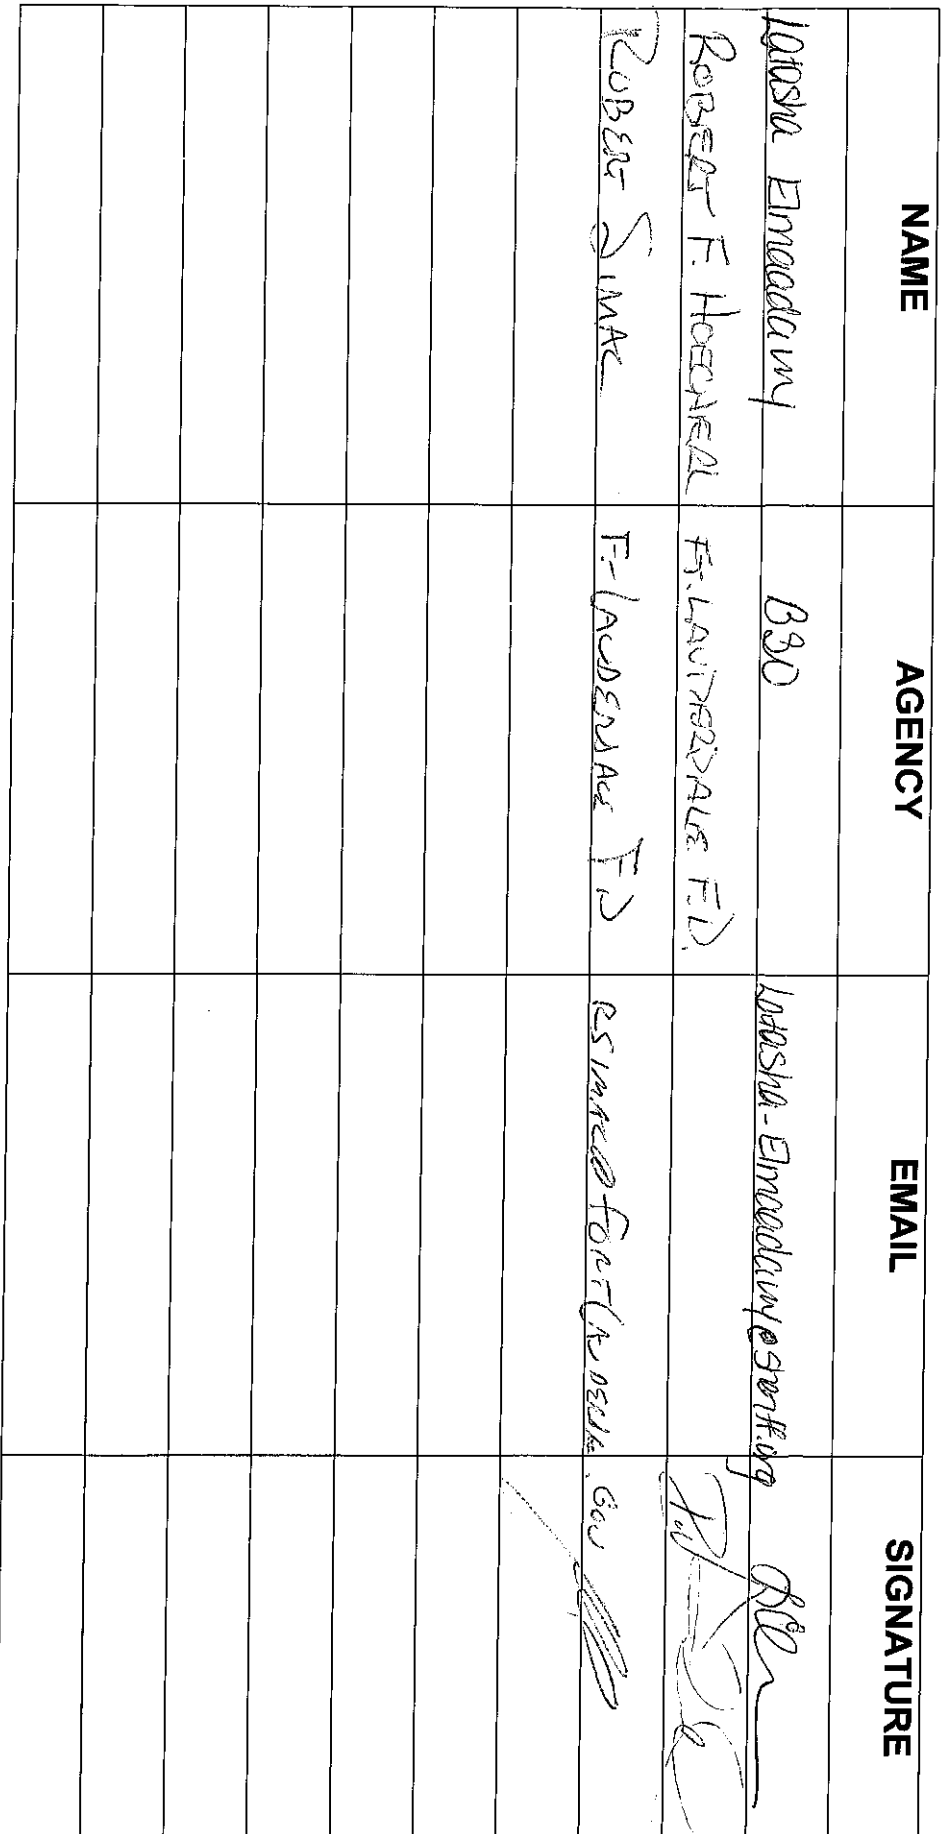 NAME AGENCY EMAIL SIGNATURE
Latasha Elmaadawy BSO Latasha-Elmaadawy@sheriff.org
ROBERT F. HOECHERL FT. LAUDERDALE F.D.
ROBERT SIMAC FT LAUDERDALE FD RSIMAC@FORTLAUDERDALE.GOV